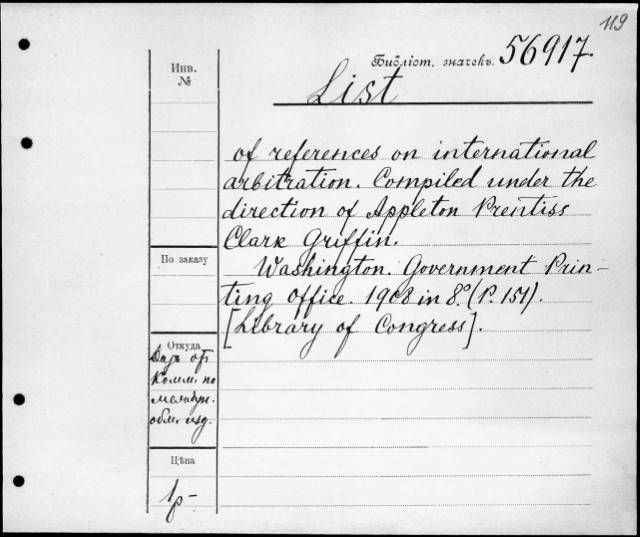 119
Библіот. значекъ. 56917.
List
Инв.
№
of references on international
arbitration. Compiled under the
direction of Appleton Prentiss
Clark Griffin.
По заказу
Washington. Government Prin-
ting office. 1908 in 8.° (P. 151).
[Library of Congress].
Откуда
Даръ от
Комм. по
междун.
обм. изд.
Цѣна
1р-